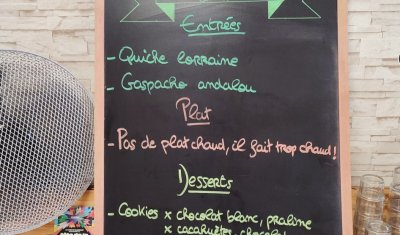 Entrées
- Quiche lorraine
- Gaspacho andalou
Plat
- Pas de plat chaud, il fait trop chaud !
Desserts
- Cookies x chocolat blanc, praliné
x cacahuètes, chocolat